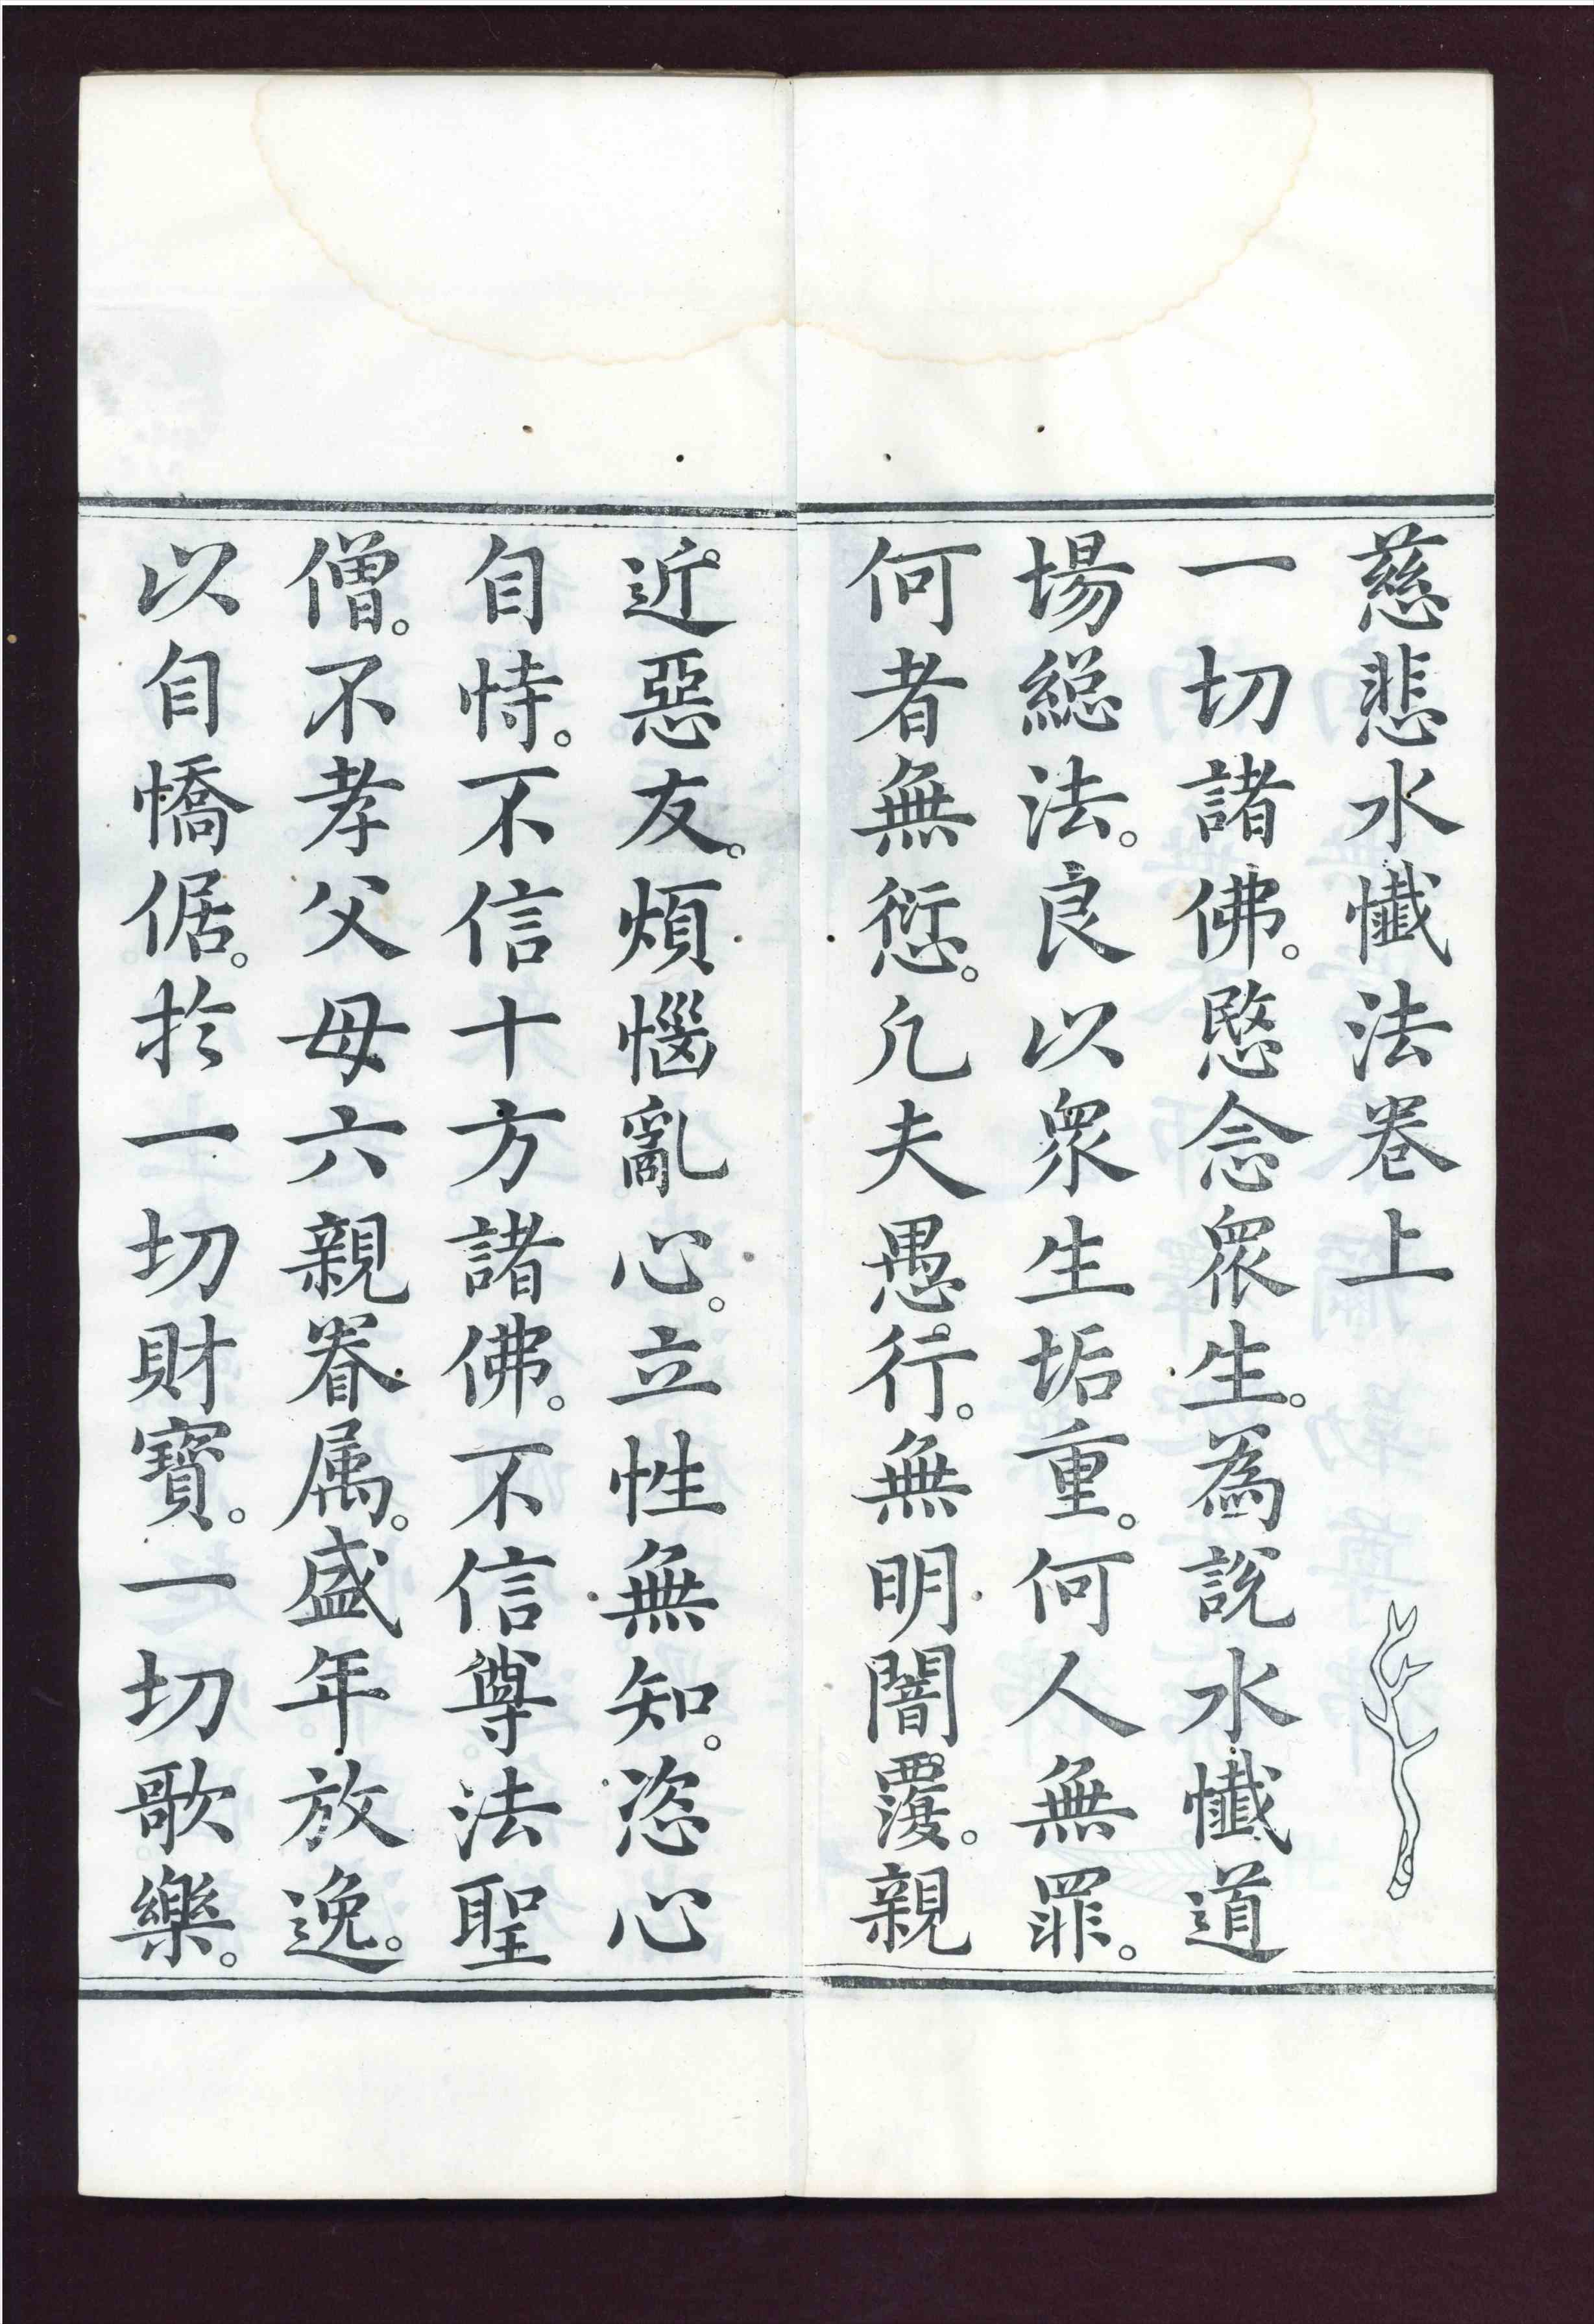 慈悲水懺法卷上
一切諸佛。愍念衆生。為說水懺道
場総法。良以衆生垢重。何人無罪。
何者無愆。凢夫愚行。無明闇覆。親
近惡友。煩惱亂心。立性無知。恣心
自恃。不信十方諸佛。不信尊法聖
僧。不孝父母六親眷属。盛年放逸。
以自憍倨。扵一切財寶。一切歌樂。